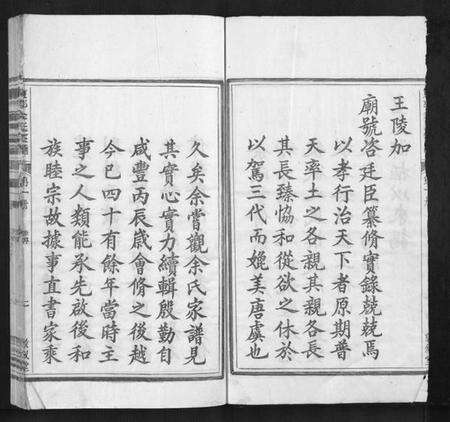 王陵加
廟號咨廷臣纂脩實錄兢兢焉
以孝行治天下者原期普
天率土之各親其親各長
其長臻協和從欲之休於
以駕三代而媲美唐虞也
久矣余嘗觀余氏家譜見
其實心實力續輯殷勤自
咸豐丙辰歲會脩之後越
今已四十有餘年當時主
事之人類能承先啟後和
族睦宗故據事直書家乘